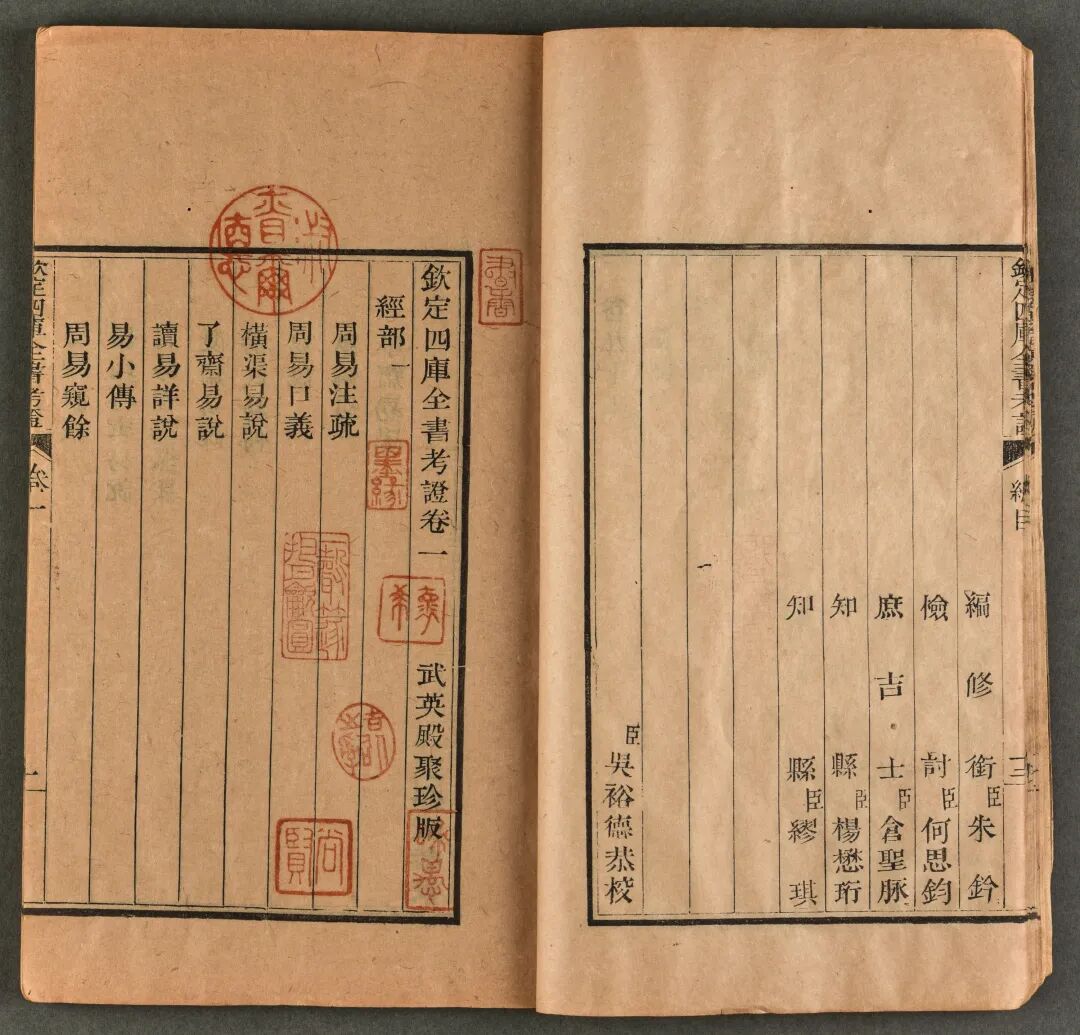 欽定四庫全書考證 總目 三
編修銜臣朱鈐
檢討臣何思鈞
庶吉士臣倉聖脈
知縣臣楊懋珩
知縣臣繆琪
臣吳裕德恭校
欽定四庫全書考證卷一 武英殿聚珍版
經部一
周易注疏
周易口義
橫渠易說
了齋易說
讀易詳說
易小傳
周易窺餘
欽定四庫全書考證 卷一 一
墨緣
尚賢